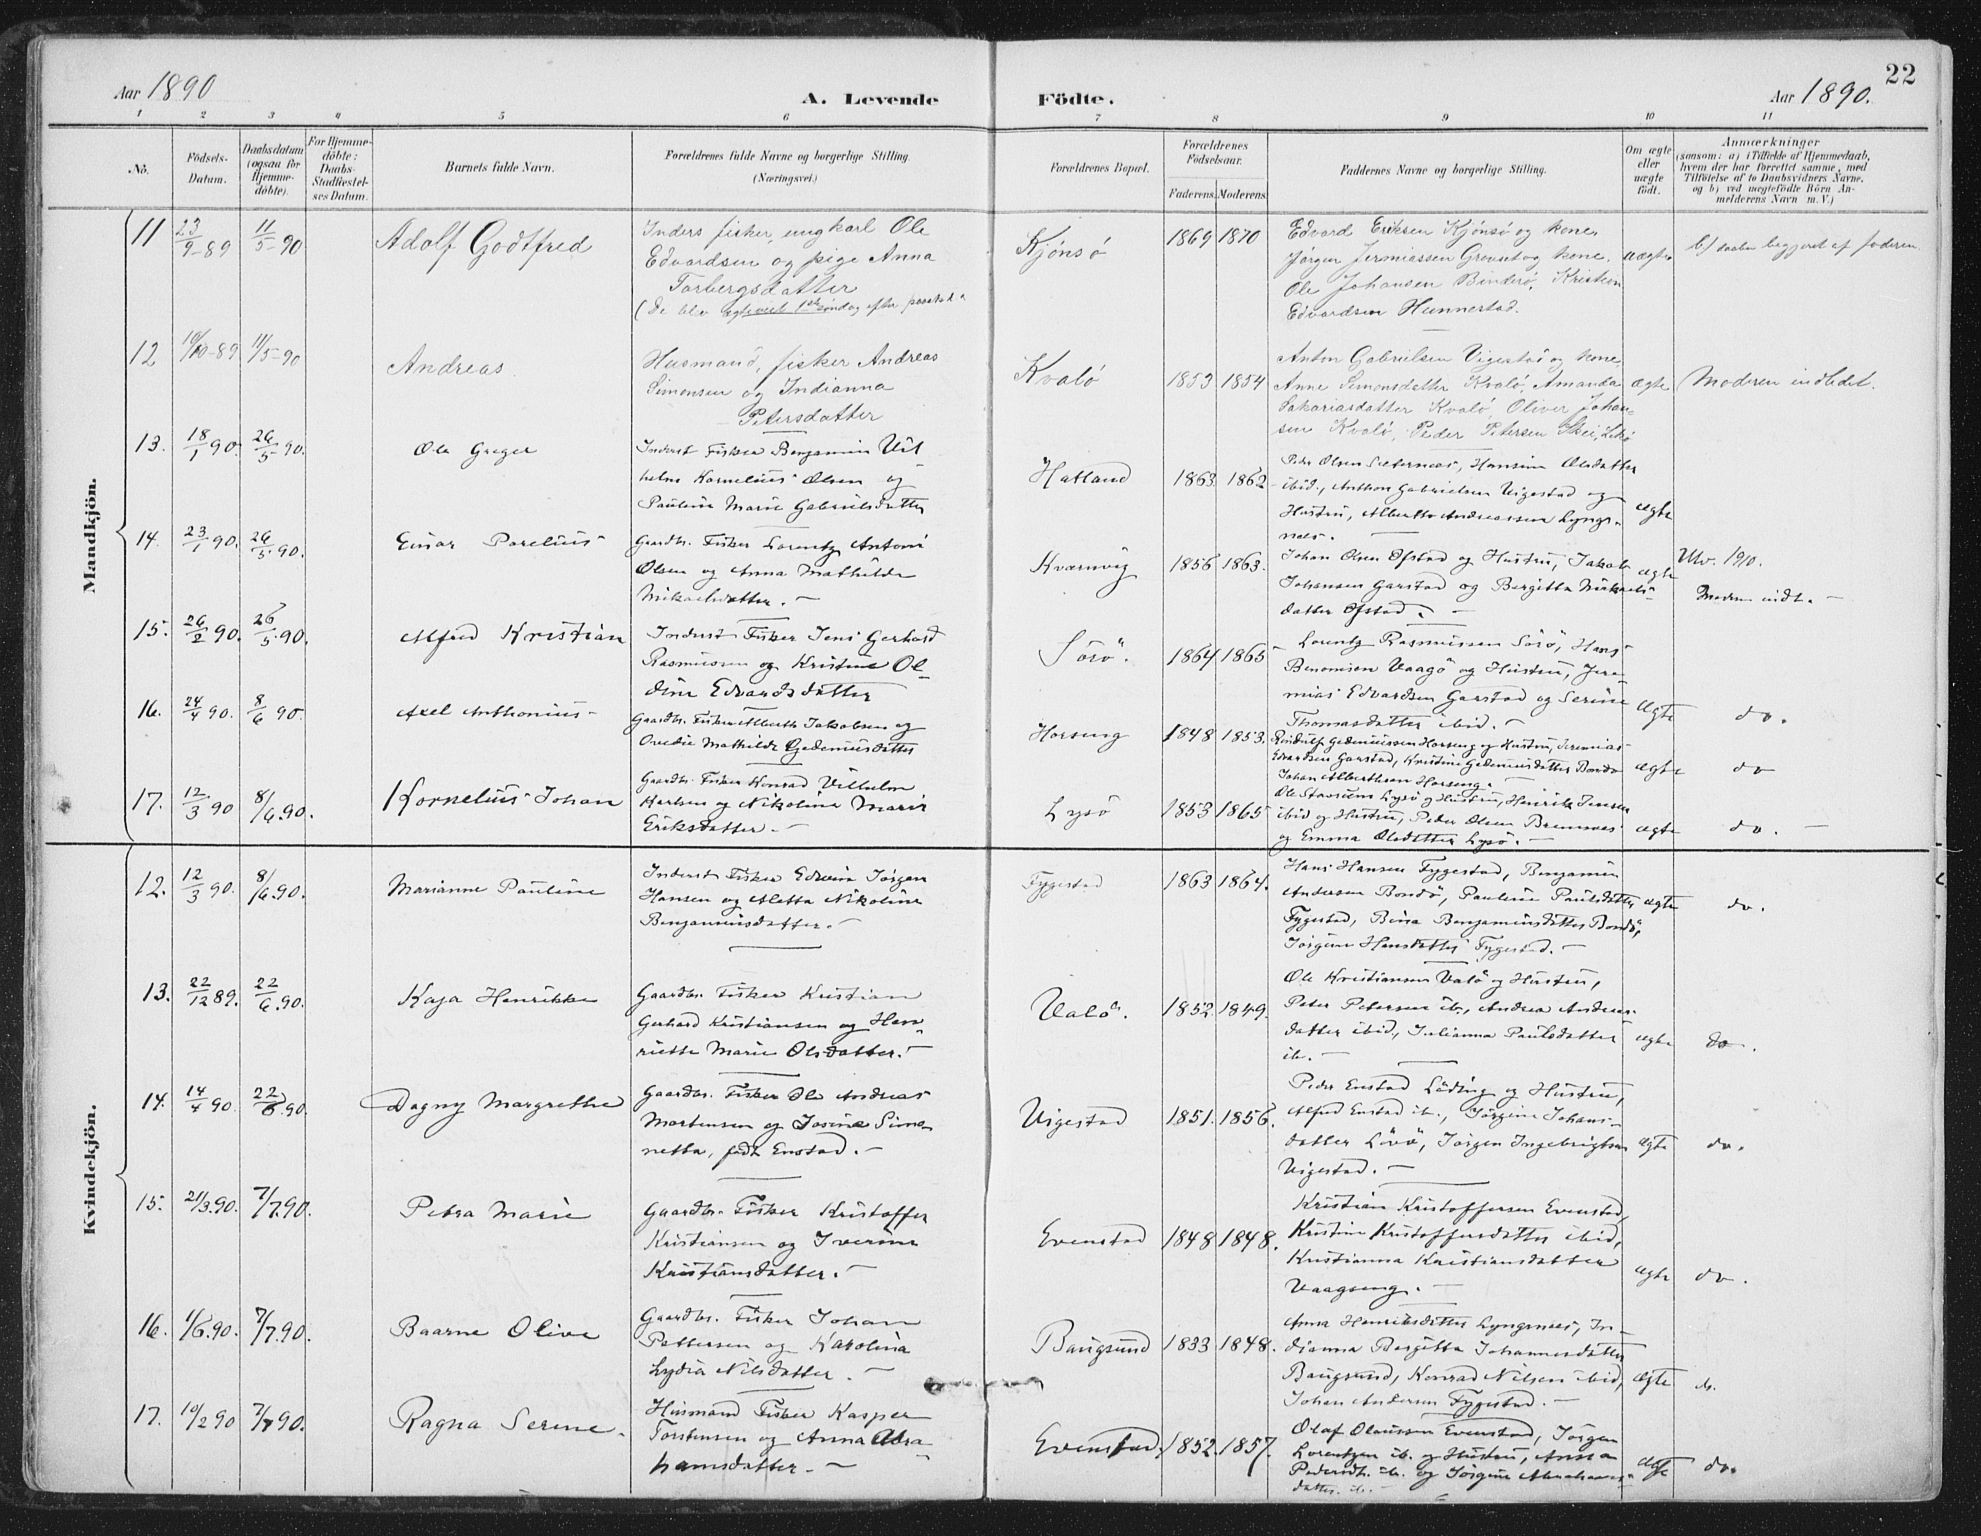 Aar 1890
A. Levende
Födte.
Aar 1890.
22
1 2 3 4 5 6 7 8 9 10 11
No.
Födsels-Datum.
Daabsdatum (ogsaa for Hjemme-döbte).
For Hjemme-döbte: Daabs-Stadfæstel-ses Datum.
Barnets fulde Navn.
Forældrenes fulde Navne og borgerlige Stilling.
(Næringsvei.)
Forældrenes Bopæl.
Forældrenes Födselsaar.
Faderens. Moderens.
Faddernes Navne og borgerlige Stilling.
Om ægte eller uægte födt.
Anmærkninger
(saasom: a) i Tilfælde af Hjemmedaab,
hvem der har forrettet samme, med
Tilföielse af to Daabsvidners Navne,
og b) ved uægtefödte Börn An-
melderens Navn m. V.)
Mandkjön.
11 23/9-89 11/5-90 Adolf Godtfred
Inders fisker, ungkarl Ole
Edvardsen og pige Anna
Torbergsdatter
(De blev
Kjönsö 1869 1870
Edvard Eriksen Kjönsö og kone,
Jørgen Jermiassen Grønset og kone.
Ole Johansen Binderö, Kristen
Edvardsen Hunnestad.
uægte
b) daaben begjæret af faderen
12 10/10-89 11/5-90 Andreas
Husmand, fisker Andreas
Simonsen og Indianna
Petersdatter
Kvalö 1853 1854
Anton Gabrielsen Vigestad og kone,
Anne Simonsdatter Kvalö, Amanda
Sakariasdatter Kvalö, Oliver Johan-
sen Kvalö, Peder Petersen Skei, Lekö
ægte Moderen indledet.
13. 18/1 90. 26/5 90. Ole Greger
Inderst Fisker Benjamin Vil
helm Kornelius Olsen og
Pauline Marie Gabrielsdatter
Hatland 1863 1862
Peder Olsen Sæternæs, Hansine Olsdatter
ibid., Anthon Gabrielsen Vigestad og
Hustru, Alberth Andreassen Lyngs-
næs. —
ægte
14. 23/1 90. 26/5 90. Einar Parelius
Gaardbr. Fisker Lorentz Antoni
Olsen og Anna Mathilde
Mikaelsdatter. —
Kværnvig 1856 1863.
Johan Olsen Øfstad og Hustru, Jakob
Johansen Garstad og Bergitta Mikaels-
datter Øfstad. —
ægte Utv. 1910.
Moderen indl. —
15. 26/2 90. 26/5 90. Alfred Kristian
Inderst Fisker Jens Gerhard
Rasmussen og Kristine Ol-
dine Edvardsdatter
Sörö. 1864 1865
Lorentz Rasmussen Sörö, Hans
Benonisen Vaagö og Hustru, Jere-
mias Edvardsen Garstad og Serine
Thomasdatter ibid. —
ægte do.
16. 24/4 90. 8/6 90. Axel Anthonius
Gaardbr. Fisker Alberth Jakobsen og
Ovedie Mathilde Gedeniusdatter
Horseng 1848 1853.
Rindulf Gedeniussen Horseng og Hustru, Jeremias
Edvardsen Garstad, Kristine Gedeniusdatter Bondö
Johan Alberthsen Horseng. —
ægte do
17. 12/3 90 8/6.90. Kornelius Johan
Gaardbr. Fisker Konrad Vilhelm
Karlsen og Nikoline Marie
Eriksdatter. —
Lysö 1853 1865
Ole Stavrum Lysö og Hustru, Henrik Jensen
ibid og Hustru, Peder Olsen Bremnæs
og Emma Olsdatter Lysö. —
ægte do. —
Kvindekjön.
12. 12/3 90. 8/6.90. Marianne Pauline
Inderst Fisker Edvin Jörgen
Hansen og Aletta Nikoline
Benjaminsdatter. —
Fygestad 1863 1864.
Hans Hansen Fygestad, Benjamin
Andersen Bondö, Pauline Paulsdatter
Fygestad, Bina Benjaminsdatter Bondö,
Jörgine Hansdatter Fygestad. —
ægte do.
13. 22/12 89. 22/6.90. Kaja Henrikke
Gaardbr. Fisker Kristian
Gerhard Kristiansen og Hen-
riette Marie Olsdatter. —
Valö. 1852. 1849.
Ole Kristiansen Valö og Hustru,
Peter Petersen ib., Andrea Andreas-
datter ibid, Julianna Paulsdatter
ib. —
ægte do.
14. 14/4 90. 22/6.90. Dagny Margrethe
Gaardbr. Fisker Ole Andreas
Mortensen og Josine Simo-
netta, född Enstad. —
Vigestad 1851. 1856.
Peder Enstad Löding og Hustru,
Alfred Enstad ib., Jörgine Johans-
datter Lövö, Jörgen Ingebrigtsen
Vigestad. —
ægte do.
15. 21/3.90. 7/7.90. Petra Marie
Gaardbr. Fisker Kristoffer
Kristiansen og Iverine
Kristiansdatter. —
Evenstad 1848 1848.
Kristian Kristoffersen Evenstad,
Kristine Kristoffersdatter ibid,
Kristianna Kristiansdatter
Vaagseng. —
ægte do.
16. 1/6.90. 7/7.90. Baarne Olive
Gaardbr. Fisker Johan
Pettersen og Karolina
Lydia Nilsdatter. —
Baugsund 1833 1848.
Anna Henriksdatter Lyngsnæs, In-
dianna Bergitta Johannesdatter
Baugsund, Konrad Nilsen ibid,
Johan Andersen Fygestad. —
ægte do.
17. 10/2 90 7/7 90. Ragna Serine.
Husmand Fisker Kasper
Torstensen og Anna Abra-
hamsdatter. —
Evenstad. 1852. 1857.
Olaf Olaussen Evenstad, Jörgen
Lorentzen ib. og Hustru, Anna
Pedersdt. ib. og Jörgine Abrahams-
datter. ib. —
ægte do.